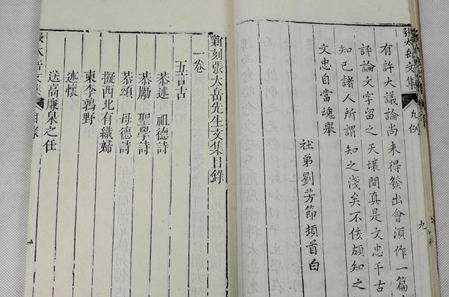 文集 凡例
九
有許大議論尚未得發出會湏作一篇
評論文字留之天壤間真是文忠千古
知已諸人所謂知之淺矣不佞頗知之
文忠自當魂舉
社弟劉芳節頓首白
新刻張太岳先生文集目錄
一卷
五言古
恭述 祖德詩
恭勵 聖學詩
恭頌 母德詩
擬西北有織婦
東李鶴野
述懷
送高廉泉之任
張太岳文集 目錄